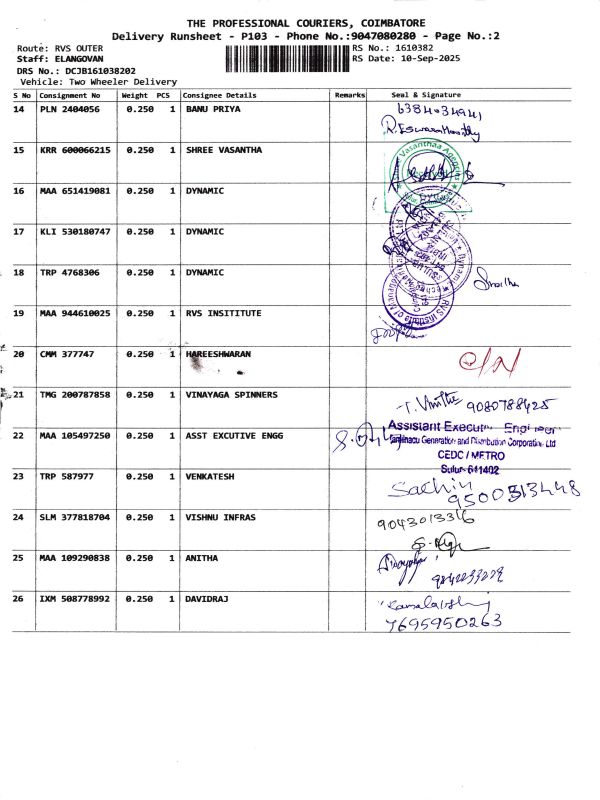 THE PROFESSIONAL COURIERS, COIMBATORE
Delivery Runsheet - P103 - Phone No.:9047080280 - Page No.:2
Route: RVS OUTER RS No.: 1610382
Staff: ELANGOVAN RS Date: 10-Sep-2025
DRS No.: DCJB161038202
Vehicle: Two Wheeler Delivery
S No Consignment No Weight PCS Consignee Details Remarks Seal & Signature
14 PLN 2404056 0.250 1 BANU PRIYA 6384034941
R. Eswaramoorthy
15 KRR 600066215 0.250 1 SHREE VASANTHA Vasanthaa Agencies
16 MAA 651419081 0.250 1 DYNAMIC
17 KLI 530180747 0.250 1 DYNAMIC
18 TRP 4768306 0.250 1 DYNAMIC
19 MAA 944610025 0.250 1 RVS INSITITUTE RVS Institute of
20 CMM 377747 0.250 1 HAREESHWARAN
21 TMG 200787858 0.250 1 VINAYAGA SPINNERS 9080788425
22 MAA 105497250 0.250 1 ASST EXCUTIVE ENGG Assistant Executive Engineer
Generation and Distribution Corporation Ltd
CEDC / METRO
Sulur-641402
23 TRP 587977 0.250 1 VENKATESH Sachin
9500313448
24 SLM 377818704 0.250 1 VISHNU INFRAS 9043013316
25 MAA 109290838 0.250 1 ANITHA
26 IXM 508778992 0.250 1 DAVIDRAJ
7695950263